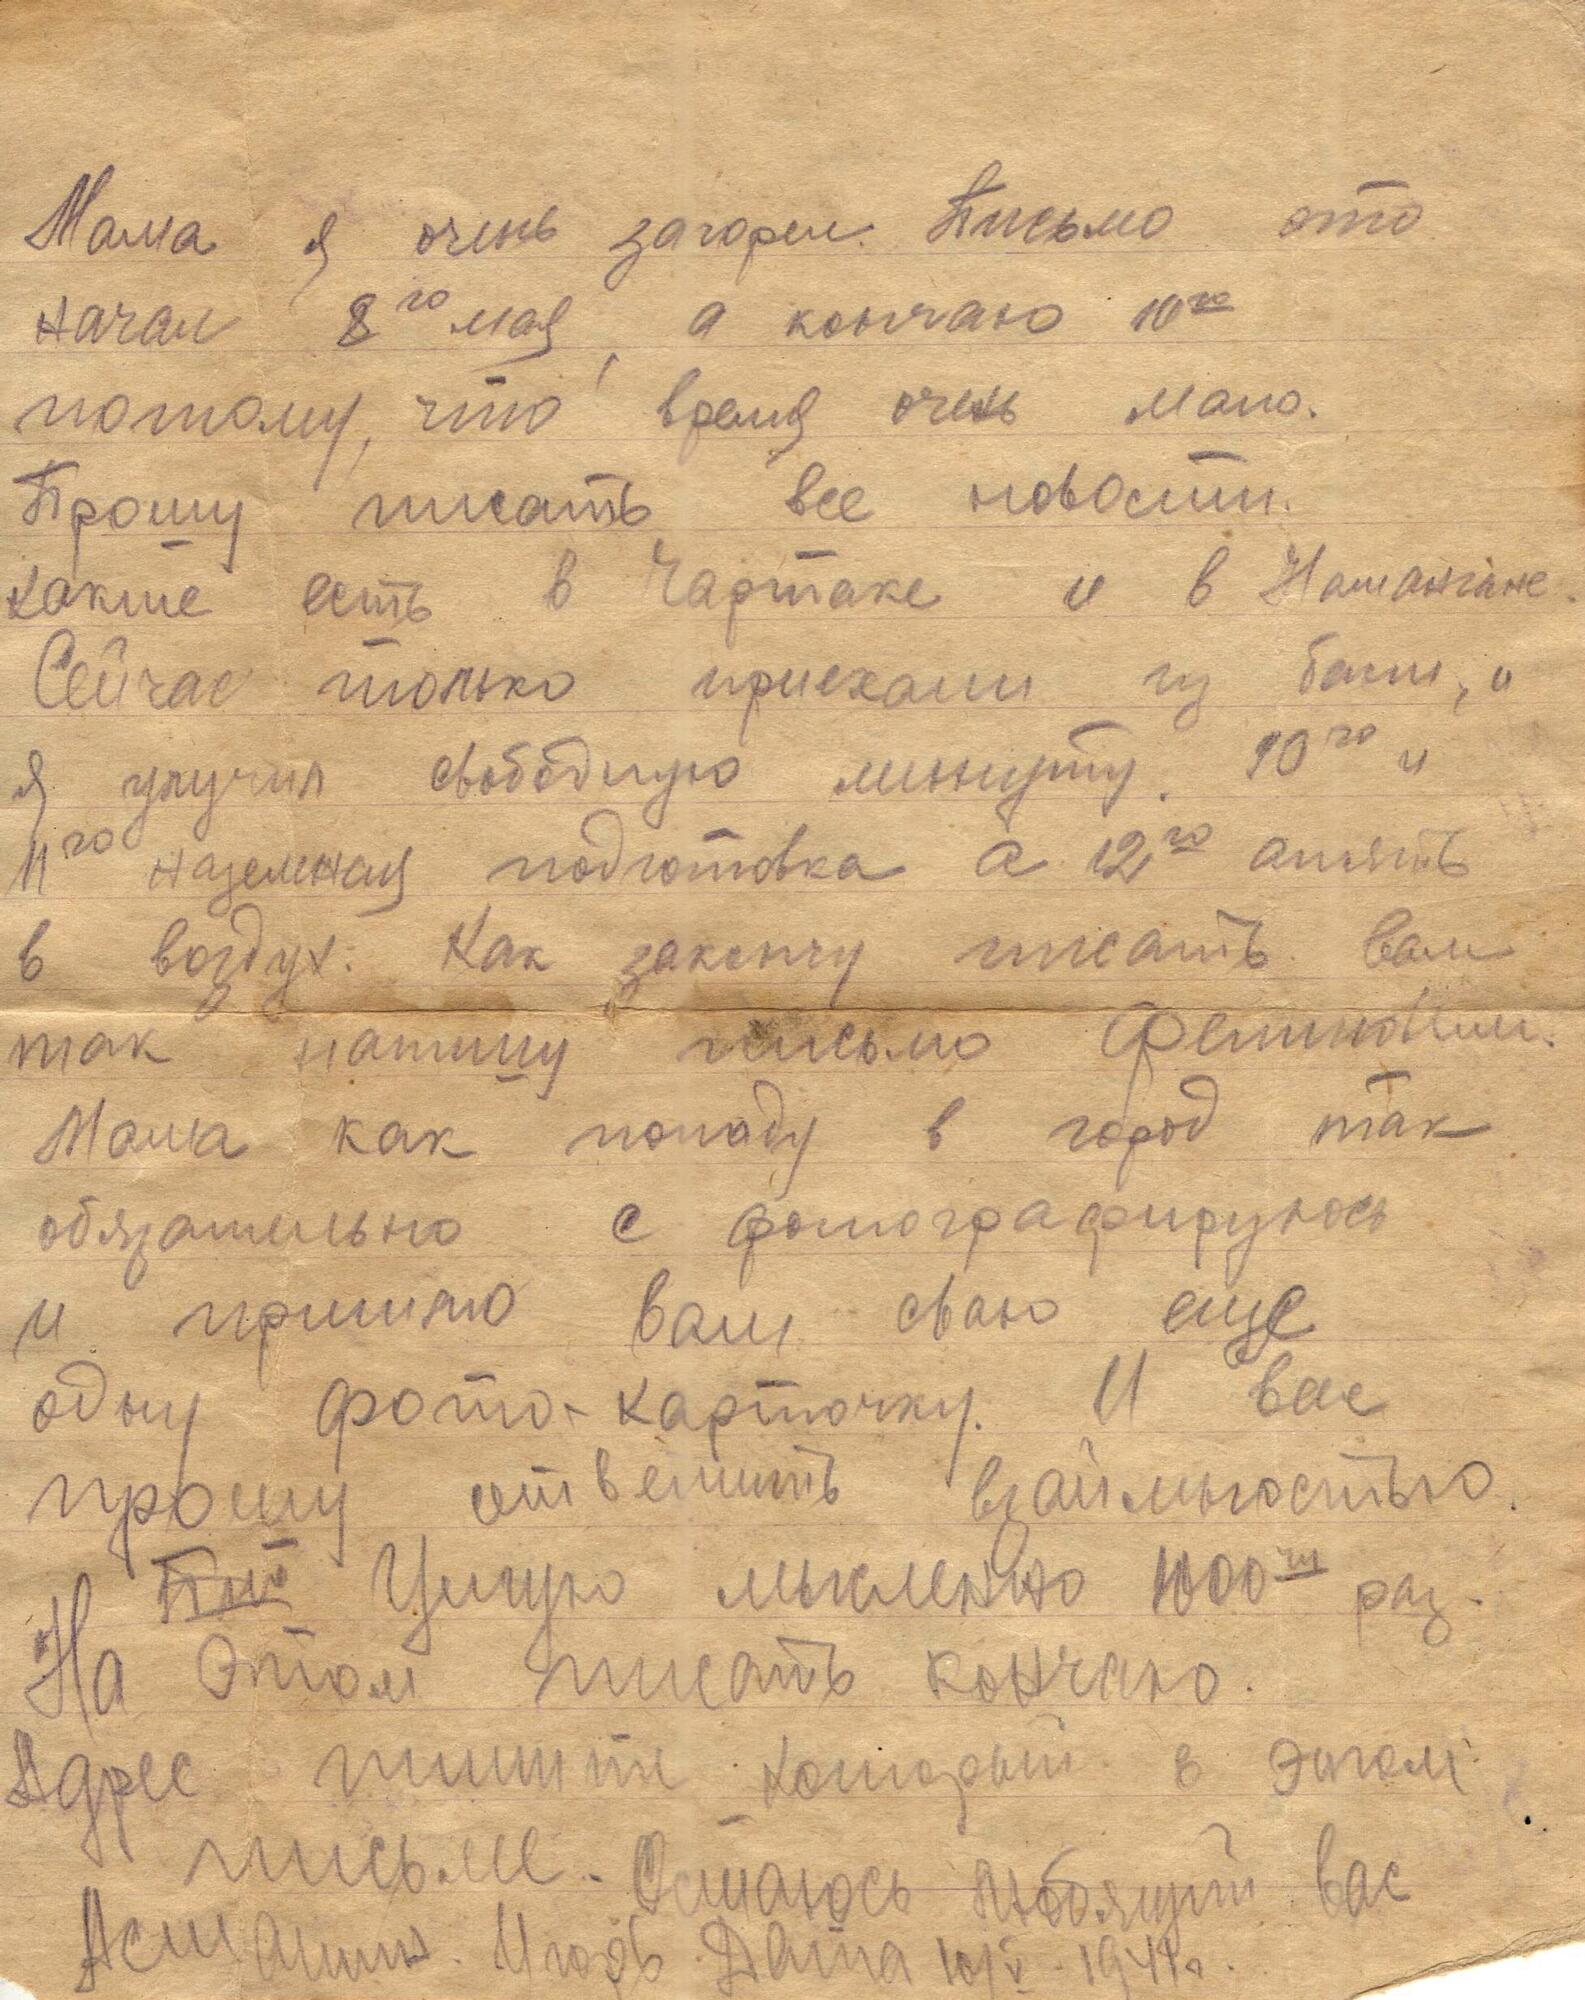 Мама я очень загорел. Письмо это
начал 8го мая, а кончаю 10го
потому, что время очень мало.
Прошу писать все новости.
какие есть в Чартаке и в Намангане.
Сейчас только приехали из бани, и
я улучил свободную минуту. 10го и
11го наземная подготовка а 12го опять
в воздух. Как закончу писать вам
так напишу письмо
Мама как попаду в город так
обязательно с фотографируюсь
и пришлю вам сваю еще
одну фото-карточку. И вас
прошу ответить взаймностью.
Целую мысленно 1000чи раз.
На этом писать кончаю.
Адрес пишите который в этом
письме. Остаюсь любящий вас
Игорь. Дата 10/V-1941г.